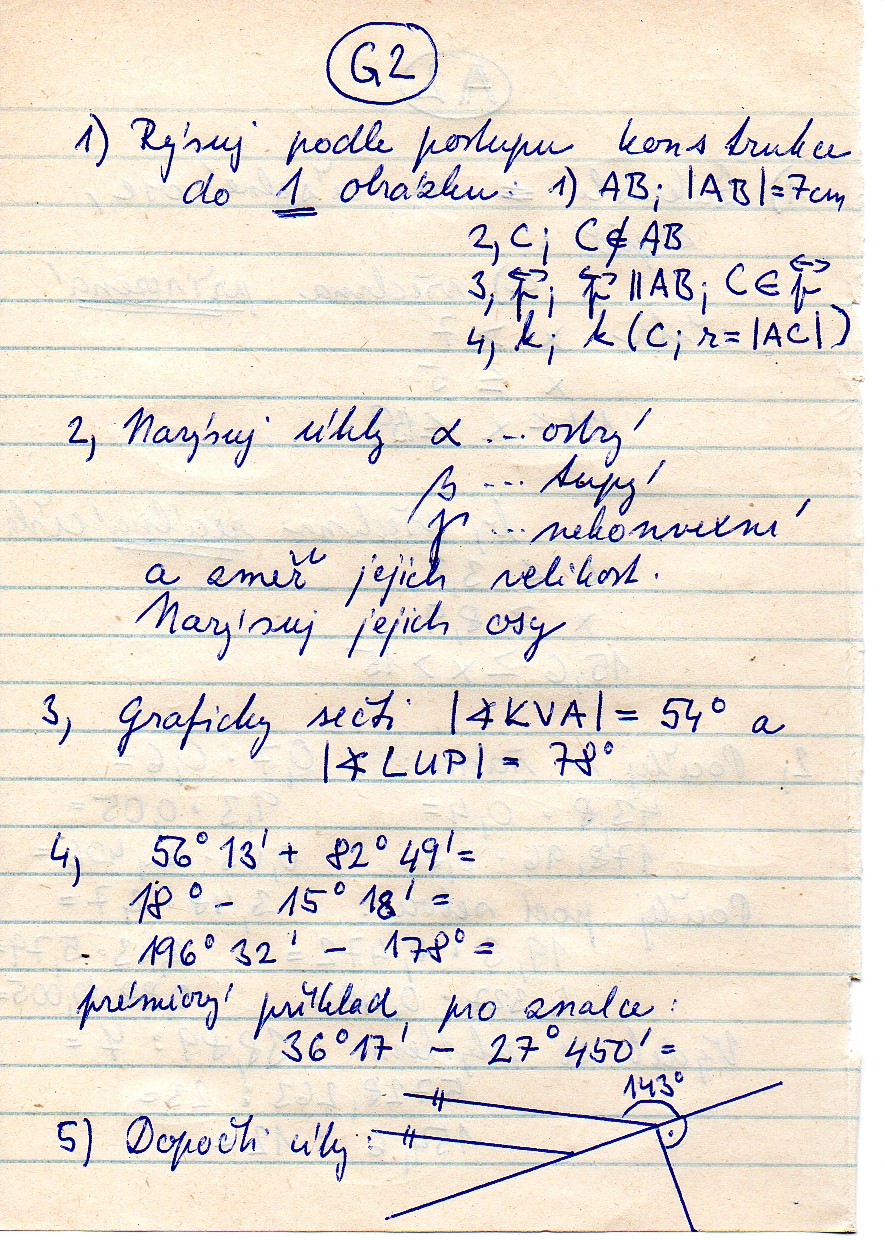 G2
1) Rýsuj podle postupu konstrukce
do 1 obrázku: 1) AB; |AB|=7cm
2, C; C∉AB
3, ↔p; ↔p ∥ AB; C∈↔p
4, k; k(C; r=|AC|)
2, Narýsuj úhly α ... ostrý
β ... tupý
γ ... nekonvexní
a změř jejich velikost.
Narýsuj jejich osy
3, Graficky sečti |∢KVA| = 54° a
|∢LUP| = 78°
4, 56° 13' + 82° 49' =
18° - 15° 18' =
196° 32' - 178° =
prémiový příklad pro znalce:
36° 17' - 27° 450' =
143°
5) Dopočti úhly: